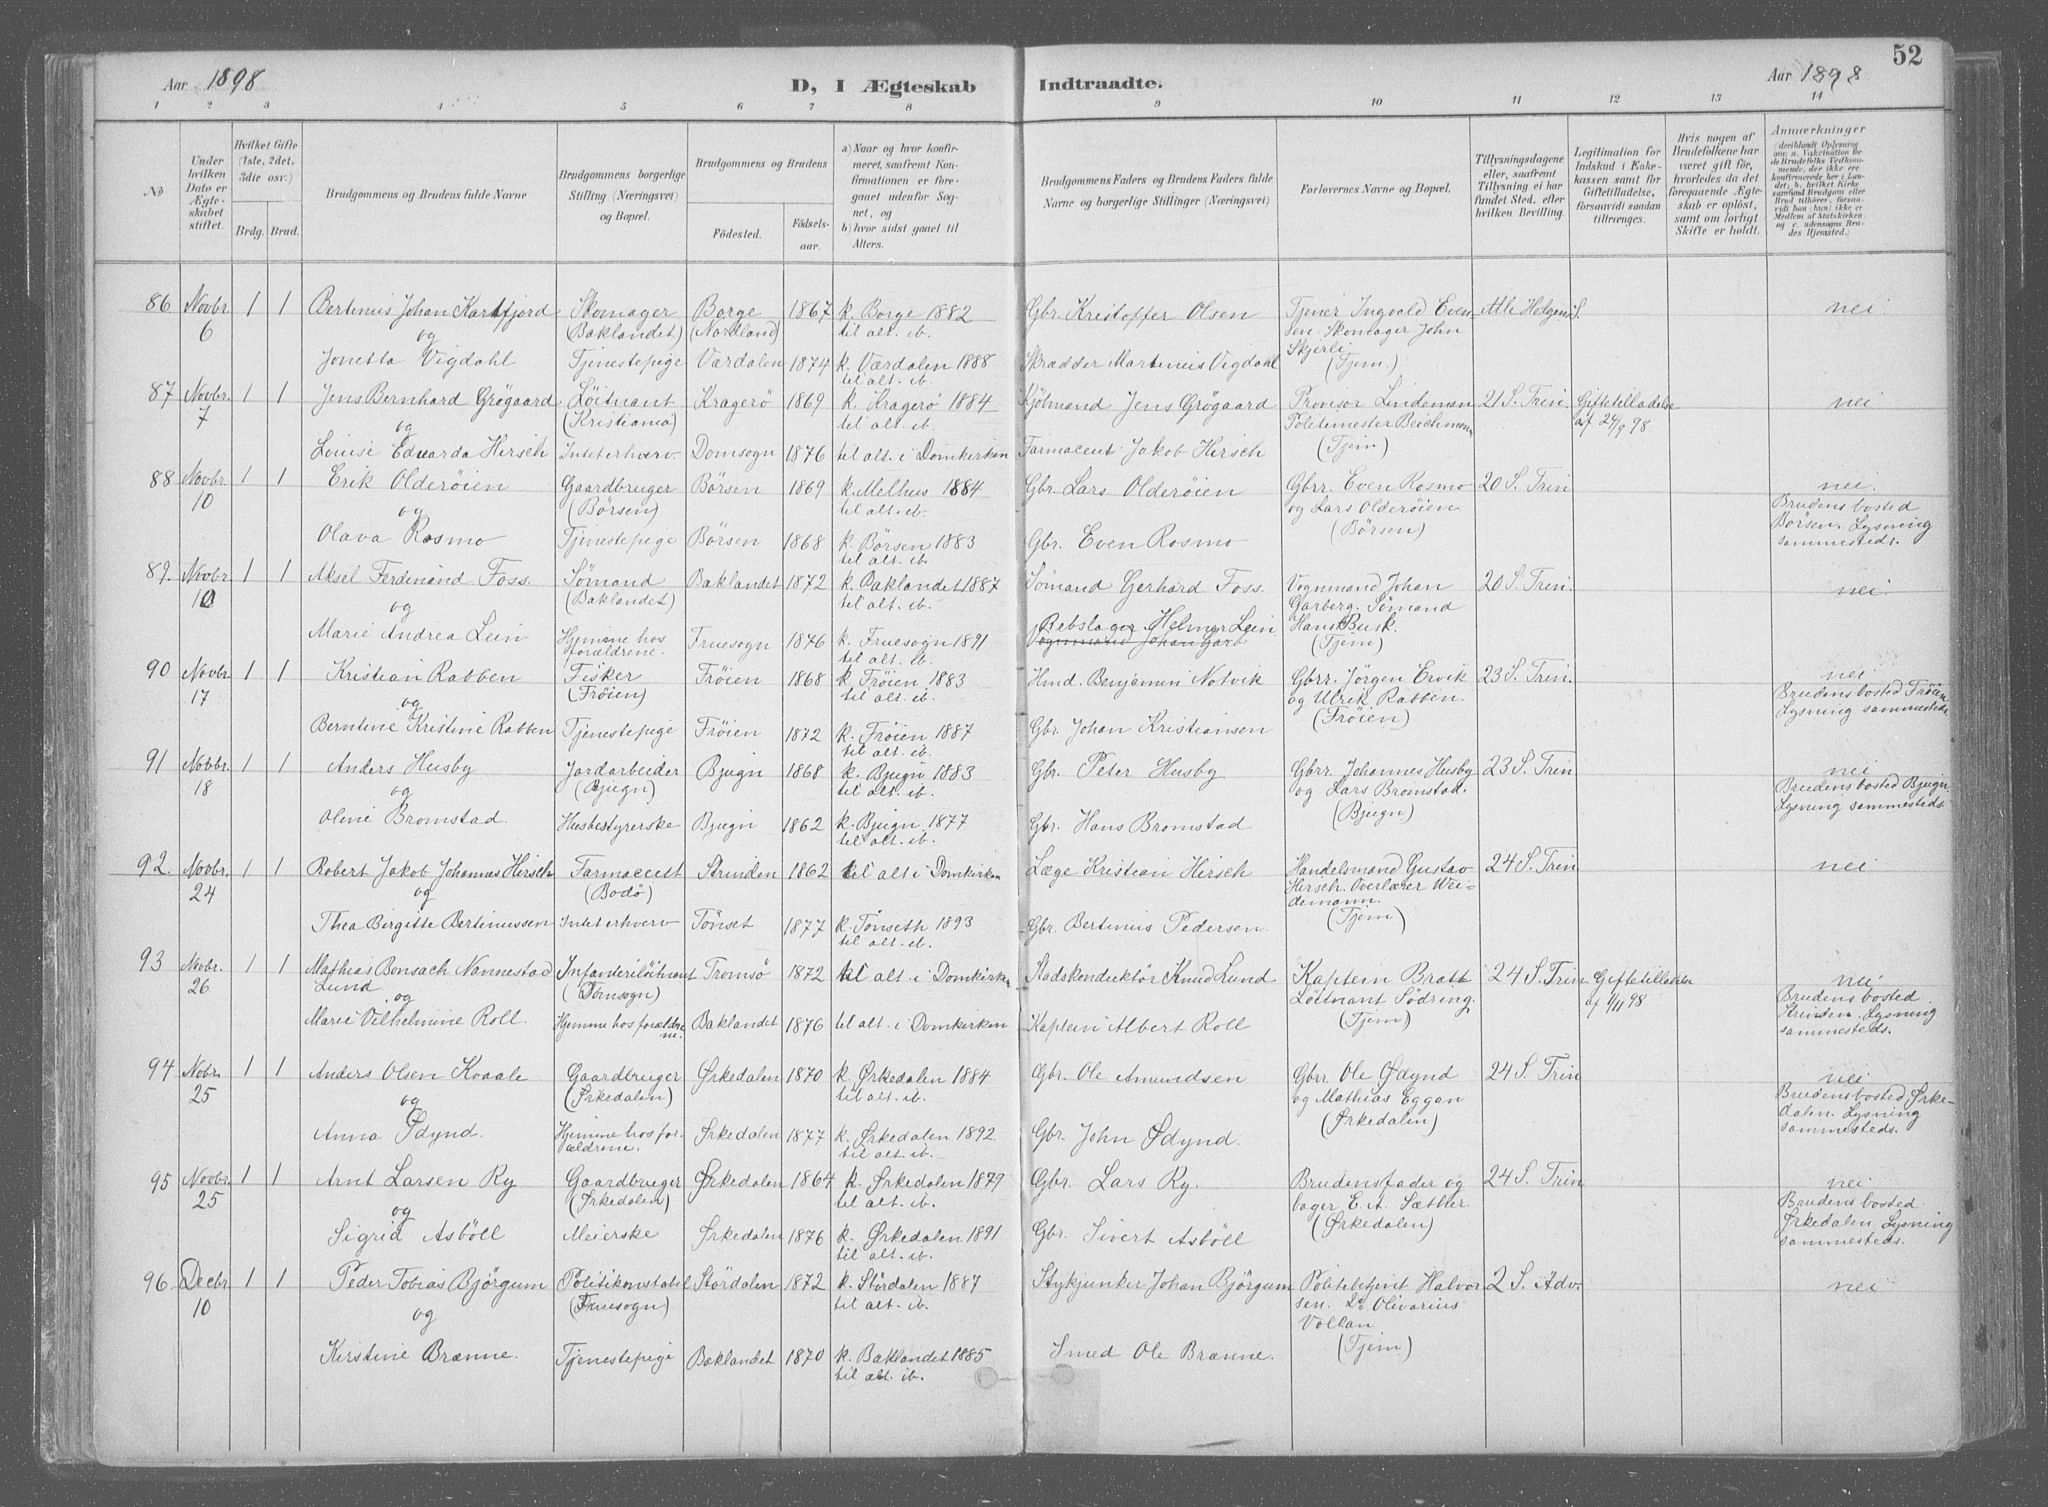 52
Aar 1898
D, I Ægteskab Indtraadte.
Aar 1898
1 2 3 4 5 6 7 8 9 10 11 12 13 14
No
Under hvilken Dato er Ægteskabet stiftet.
Hvilket Gifte (1ste, 2det, 3die osv.)
Brdg. Brud.
Brudgommens og Brudens fulde Navne
Brudgommens borgerlige Stilling (Næringsvei) og Bopæl.
Brudgommens og Brudens
Fødested. Fødselsaar.
a) Naar og hvor konfirmeret, saafremt Konfirmationen er foregaaet udenfor Sognet, og
b) hvor sidst gaaet til Alters.
Brudgommens Faders og Brudens Faders fulde Navne og borgerlige Stillinger (Næringsvei)
Forlovernes Navne og Bopæl.
Tillysningsdagene eller, saafremt Tillysning ei har fundet Sted, efter hvilken Bevilling.
Legitimation for Indskud i Enkekassen samt for Giftetilladelse, forsaavidt saadan tiltrænges.
Hvis nogen af Brudefolkene har været gift før, hvorledes da det foregaaende Ægteskab er opløst, samt om lovligt Skifte er holdt.
Anmærkninger (deriblandt Oplysning om: a. Vakcination for de Brudefolks Vedkommende, der ikke ere konfirmerede her i Landet; b. hvilket Kirkesamfund Brudgom eller Brud tilhører, forsaavidt han (hun) ikke er Medlem af Statskirken; og c. udensogns Brudes Hjemsted.)
86 Novbr. 6 1 1 Bertinius Johan Kartfjord Skomager (Baklandet) Borge (Nordland) 1867 k. Borge 1882 til alt. ib. Gbr. Kristoffer Olsen Tjener Ingvald Evensen. Skomager John Skjerli (Tjem.) Alle Helgens S. nei
og
Jonetta Vigdahl Tjenestepige Værdalen 1874 k. Værdalen 1888 til alt. ib. Skrædder Martinius Vigdahl
87 Novbr. 7 1 1 Jens Bernhard Grøgaard Løitnant (Kristiania) Kragerö 1869 k. Kragerö 1884 til alt. ib. Kjöbmand Jens Grögaard Provisor Lindeman Politimester Beichmann (Tjem) 21 S. Trin. Giftetilladelse af 24/9 98. nei
og
Louise Eduarda Hirsch Intet erhverv. Domsogn 1876 til alt. i Domkirken Farmaceut Jakob Hirsch
88 Novbr. 10 1 1 Erik Olderöien Gaardbruger (Börsen) Börsen 1869 k. Melhus 1884 til alt. ib. Gbr. Lars Olderöien Gbrr. Even Rosmo og Lars Olderöien (Börsen) 20 S. Trin nei. Brudens bosted Börsen. Lysning sammesteds.
og
Olava Rosmo Tjenestepige Börsen 1868 k. Börsen 1883 til alt. ib. Gbr. Even Rosmo
89. Novbr. 10 1 1 Aksel Ferdinand Foss. Sömand (Baklandet) Baklandet 1872 k. Baklandet 1887 til alt. ib. Sömand Gerhard Foss. Vognmand Johan Garberg. Sömand Hans Busk. (Tjem) 20 S. Trin. nei.
og
Marie Andrea Lein Hjemme hos forældrene. Fruesogn 1876 k. Fruesogn 1891 til alt. ib. Rebslager Helmer Lein Vognmand Johan Garb
90 Novbr. 17 1 1 Kristian Rabben Fisker (Fröien) Fröien 1868 k. Fröien 1883 til alt. ib. Hmd. Benjamin Notvik Gbrr. Jörgen Ervik og Ulrik Rabben. (Fröien) 23 S. Trin. nei Brudens bosted Fröien. Lysning sammesteds.
og
Berntine Kristine Rabben Tjenestepige Fröien 1872 k. Fröien 1887 til alt. ib. Gbr. Johan Kristiansen
91 Novbr. 18 1 1 Anders Husby Jordarbeider (Bjugn) Bjugn 1868 k. Bjugn 1883 til alt. ib. Gbr. Peter Husby Gbrr. Johannes Husby og Lars Bromstad. (Bjugn) 23 S. Trin nei Brudens bosted Bjugn. Lysning sammesteds.
og
Oline Bromstad. Husbestyrerske Bjugn 1862 k. Bjugn 1877 til alt. ib. Gbr. Hans Bromstad
92. Novbr. 24 1 1 Robert Jakob Johannes Hirsch Farmaceut (Bodö) Strinden 1862 til alt i Domkirken Læge Kristian Hirsch Handelsmand Gustav Hirsch. Overlærer Weidemann. (Tjem) 24 S. Trin nei
og
Thea Birgitte Bertinussen Intet erhverv Tönset 1877 k. Tönseth 1893 til alt. ib. Gbr. Bertinius Pedersen.
93 Novbr. 26 1 1 Mathias Bonsach Nannestad Lund Infanteriløitnant (Domsogn) Tromsö 1872 til alt i Domkirken Stadskonduktör Knud Lund Kaptein Bratt Löitnant Södring. (Tjem) 24 S. Trin Giftetilladelse af 1/11 98 nei Brudens bosted Strinden. Lysning sammesteds.
og
Marie Vilhelmine Roll. Hjemme hos forældrene. Baklandet 1876 til alt. i Domkirken Kaptein Albert Roll
94 Novbr. 25 1 1 Anders Olsen Kvaale Gaardbruger (Ørkedalen) Ørkedalen 1870 k. Ørkedalen 1884 til alt. ib. Gbr. Ole Amundsen Gbrr Ole Ødynd og Mathias Eggan (Ørkedalen) 24 S. Trin nei Brudens bosted Ørkedalen. Lysning sammesteds.
og
Anna Ødynd. Hjemme hos forældrene. Ørkedalen 1877 k. Ørkedalen 1892 til alt. ib. Gbr. John Ødynd.
95 Novbr. 25 1 1 Arnt Larsen Ry Gaardbruger (Ørkedalen) Ørkedalen 1864 k. Ørkedalen 1879 til alt. ib. Gbr. Lars Ry. Brudensfader og bager E. A. Sæther. (Ørkedalen) 24 S. Trin nei Brudens bosted Ørkedalen. Lysning sammesteds.
og
Sigrid Asböll Meierske Ørkedalen 1876 k. Ørkedalen 1891 til alt. ib. Gbr. Sivert Asböll
96. Decbr. 10 1 1 Peder Tobias Björgum Politikonstabel (Fruesogn) Stördalen 1872 k. Stördalen 1887 til alt. ib. Stykjunker Johan Björgum Politibetjent Halvorsen. Do Olivarius Vollan (Tjem) 2 S. Adv. nei
og
Kirstine Brænne. Tjenestepige Baklandet 1870 k. Baklandet 1885 til alt. ib. Smed Ole Brænne.